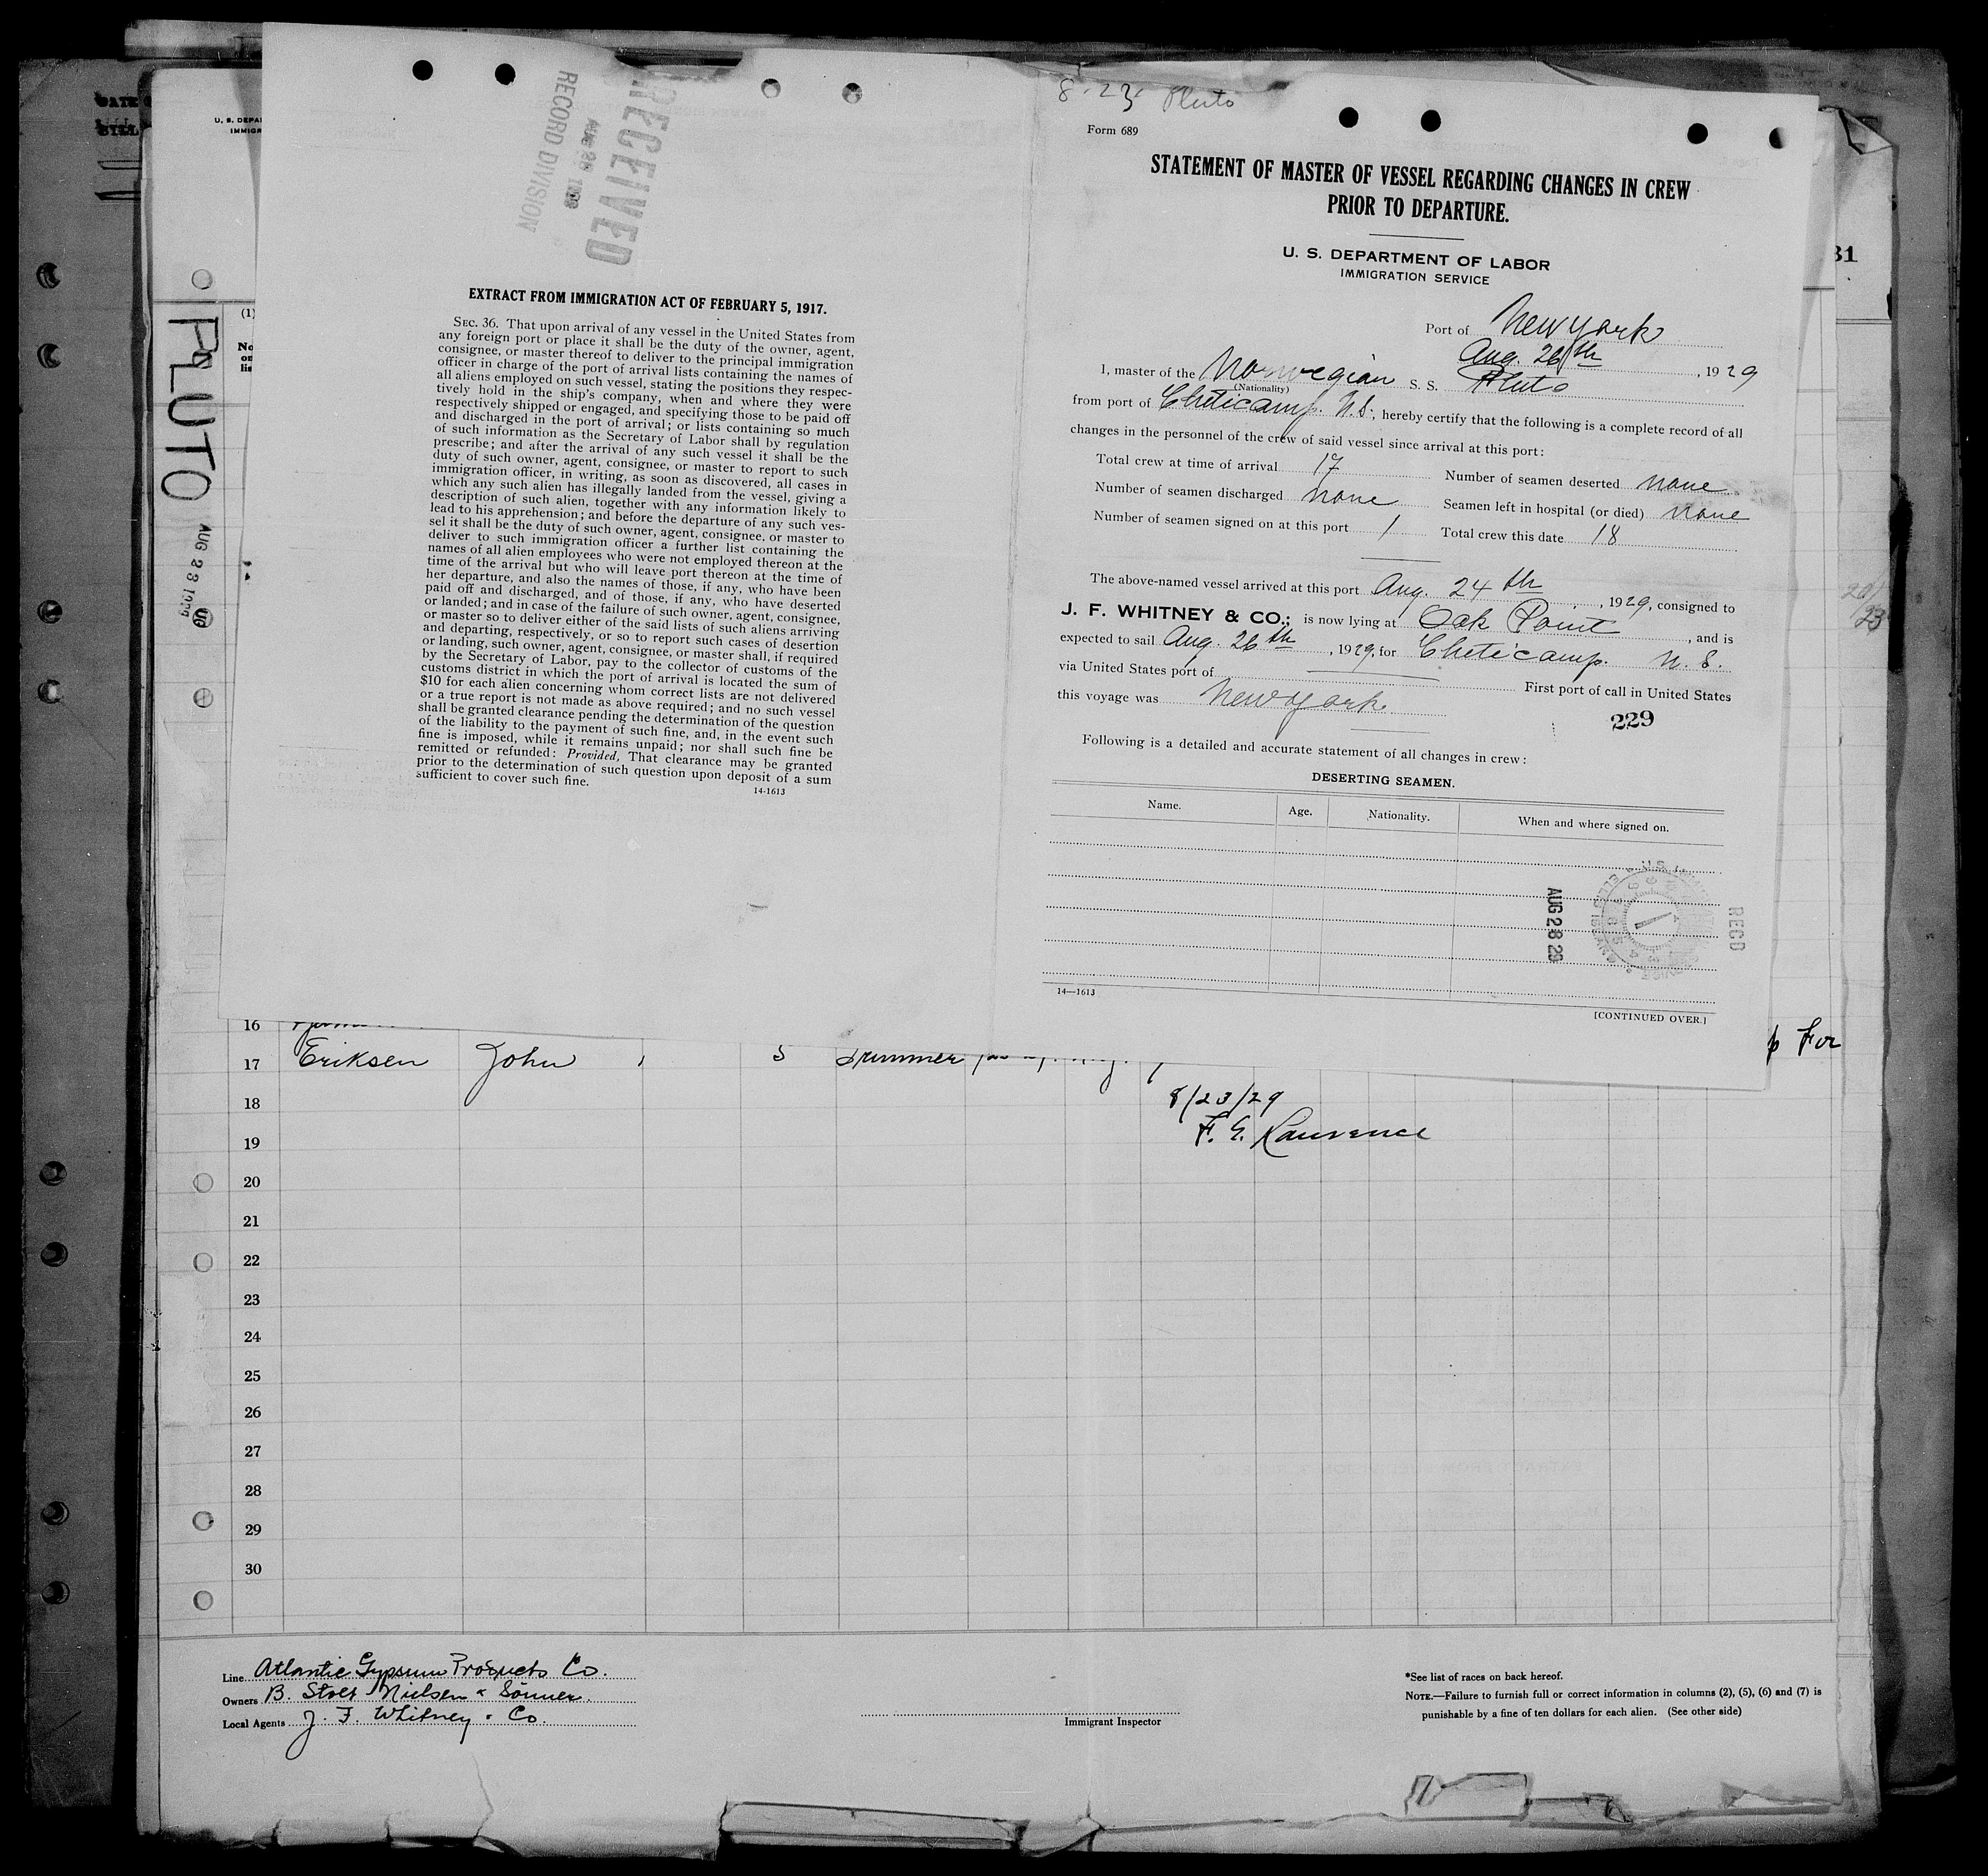 RECEIVED
AUG 28 1929
RECORD DIVISION
EXTRACT FROM IMMIGRATION ACT OF FEBRUARY 5, 1917.
SEC. 36. That upon arrival of any vessel in the United States from
any foreign port or place it shall be the duty of the owner, agent,
consignee, or master thereof to deliver to the principal immigration
officer in charge of the port of arrival lists containing the names of
all aliens employed on such vessel, stating the positions they respec-
tively hold in the ship's company, when and where they were
respectively shipped or engaged, and specifying those to be paid off
and discharged in the port of arrival; or lists containing so much
of such information as the Secretary of Labor shall by regulation
prescribe; and after the arrival of any such vessel it shall be the
duty of such owner, agent, consignee, or master to report to such
immigration officer, in writing, as soon as discovered, all cases in
which any such alien has illegally landed from the vessel, giving a
description of such alien, together with any information likely to
lead to his apprehension; and before the departure of any such ves-
sel it shall be the duty of such owner, agent, consignee, or master to
deliver to such immigration officer a further list containing the
names of all alien employees who were not employed thereon at the
time of the arrival but who will leave port thereon at the time of
her departure, and also the names of those, if any, who have been
paid off and discharged, and of those, if any, who have deserted
or landed; and in case of the failure of such owner, agent, consignee,
or master so to deliver either of the said lists of such aliens arriving
and departing, respectively, or so to report such cases of desertion
or landing, such owner, agent, consignee, or master shall, if required
by the Secretary of Labor, pay to the collector of customs of the
customs district in which the port of arrival is located the sum of
$10 for each alien concerning whom correct lists are not delivered
or a true report is not made as above required; and no such vessel
shall be granted clearance pending the determination of the question
of the liability to the payment of such fine, and, in the event such
fine is imposed, while it remains unpaid; nor shall such fine be
remitted or refunded: Provided, That clearance may be granted
prior to the determination of such question upon deposit of a sum
sufficient to cover such fine.
14-1613
8-23. Pluto
Form 689
STATEMENT OF MASTER OF VESSEL REGARDING CHANGES IN CREW
PRIOR TO DEPARTURE.
U. S. DEPARTMENT OF LABOR
IMMIGRATION SERVICE
Port of New York
Aug. 26th, 1929
I, master of the Norwegian S. S. Pluto
(Nationality)
from port of Cheticamp. N.S., hereby certify that the following is a complete record of all
changes in the personnel of the crew of said vessel since arrival at this port:
Total crew at time of arrival 17 Number of seamen deserted none
Number of seamen discharged none Seamen left in hospital (or died) none
Number of seamen signed on at this port 1 Total crew this date 18
The above-named vessel arrived at this port Aug. 24th, 1929, consigned to
J. F. WHITNEY & CO.; is now lying at Oak Point, and is
expected to sail Aug. 26th, 1929, for Cheticamp. N. S.
via United States port of First port of call in United States
this voyage was New York.
229
Following is a detailed and accurate statement of all changes in crew:
DESERTING SEAMEN.
Name. Age. Nationality. When and where signed on.
AUG 28 29
ELLIS ISLAND
REC'D
14—1613
[CONTINUED OVER.]
U. S. DEPA
IMMIGR
31
PLUTO
AUG 23 1929
(1)
No
on
lis
16
17 Eriksen John 5 Trimmer
p For
18 8/23/29
19 F. E. Lawrence
20
21
22
23
24
25
26
27
28
29
30
Line Atlantic Gypsum Products Co.
Owners B. Stolt Nielsen & Sönner.
Local Agents J. F. Whitney & Co.
Immigrant Inspector
*See list of races on back hereof.
NOTE.—Failure to furnish full or correct information in columns (2), (5), (6) and (7) is
punishable by a fine of ten dollars for each alien. (See other side)